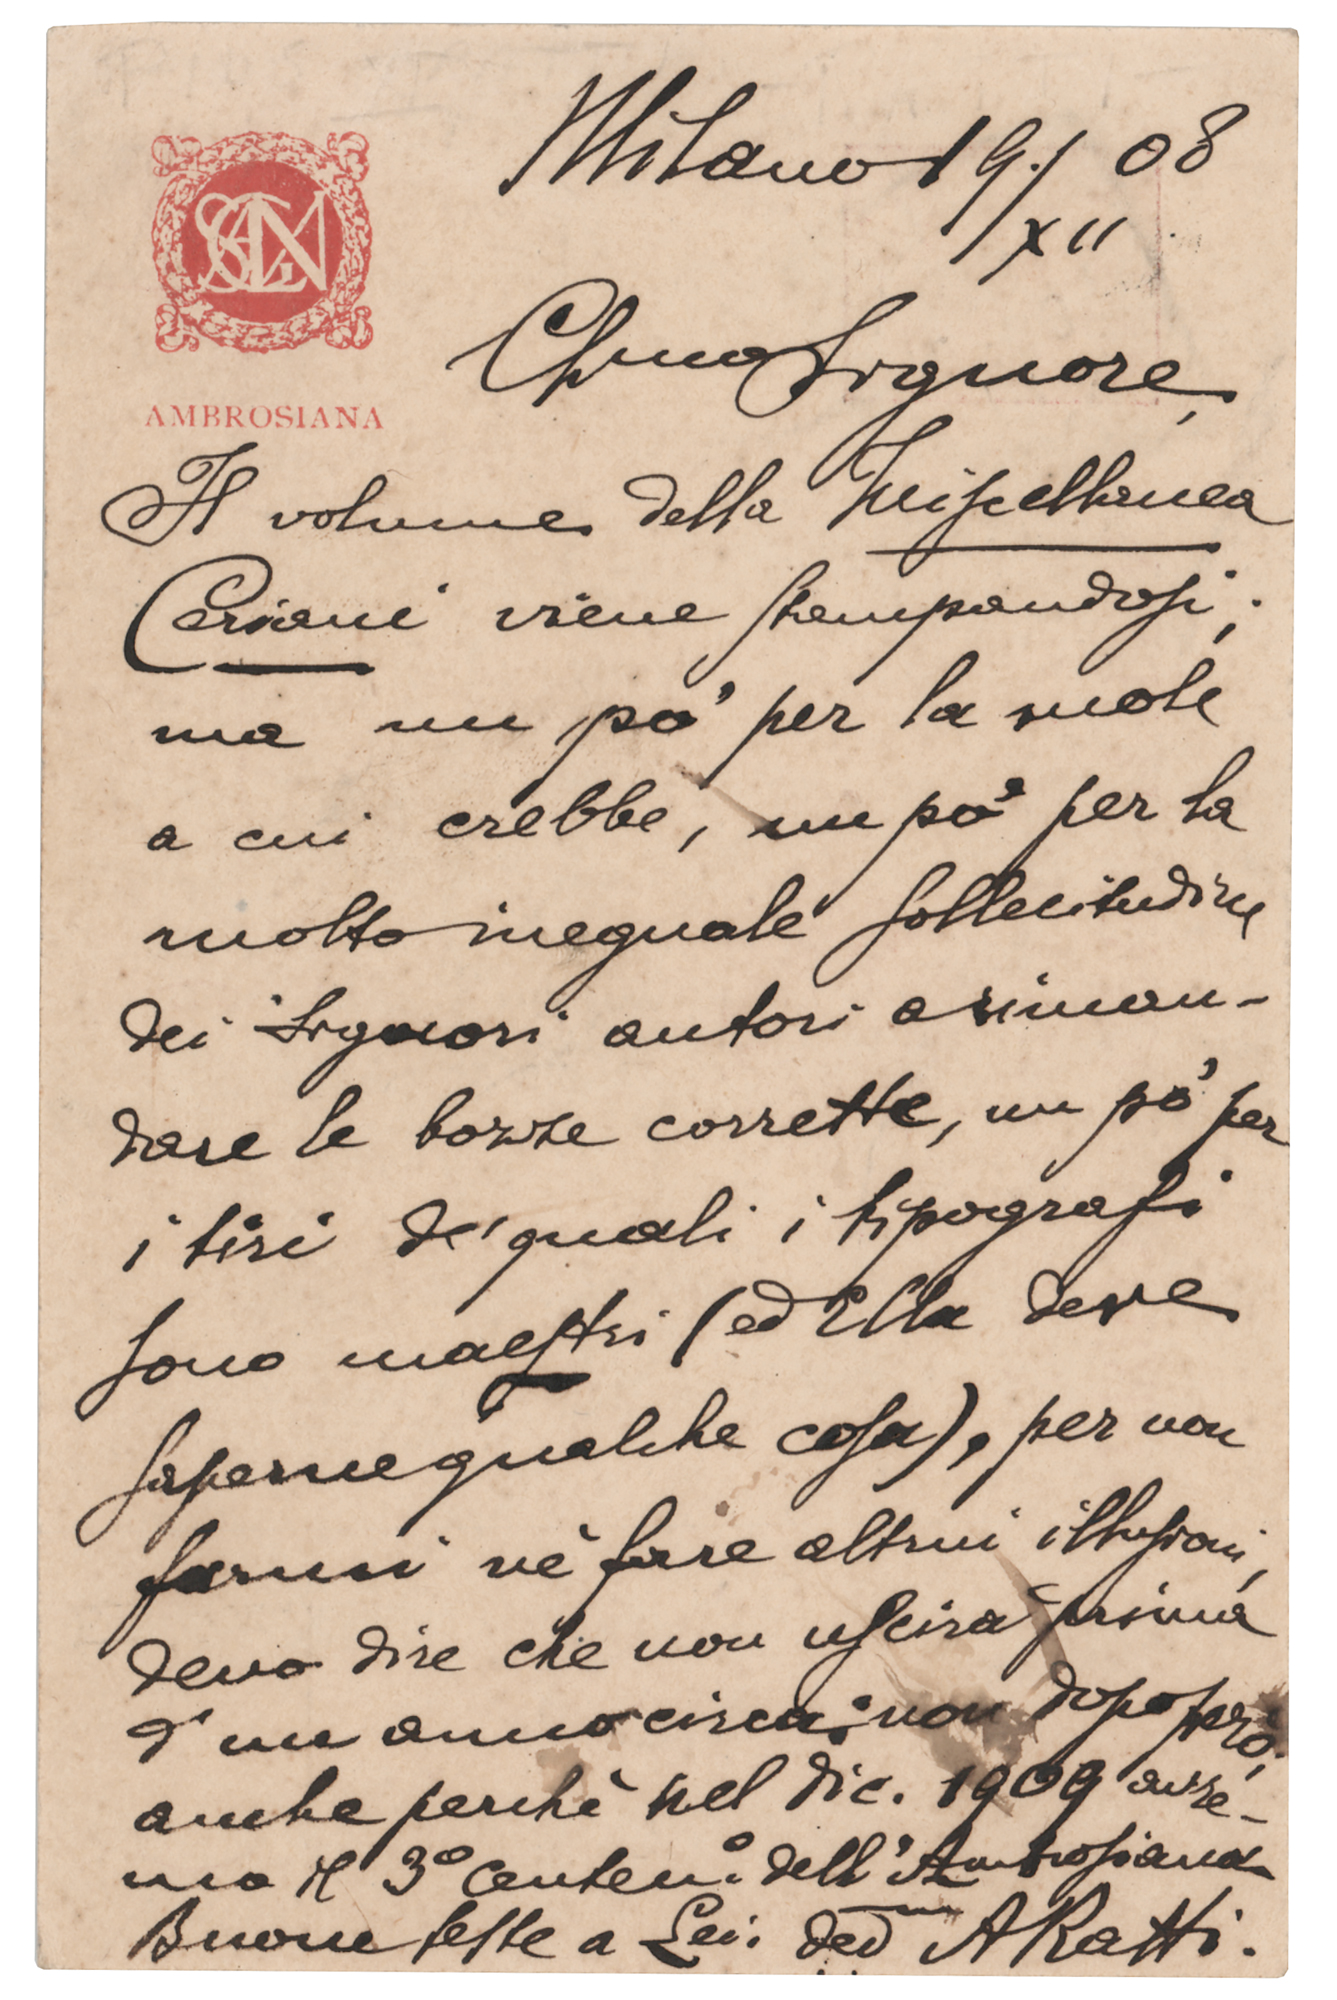 Milano 19./XII 08
AMBROSIANA
Chmo Signore,
Il volume della Miscellanea
Ceriani viene stampandosi;
ma un po' per la mole
a cui crebbe, un po' per la
molto ineguale sollecitudine
dei Signori autori a riman-
dare le bozze corrette, un po' per
i tiri de' quali i tipografi
sono maestri (ed Ella deve
saperne qualche cosa), per non
farmi nè fare altrui illusioni,
devo dire che non uscirà prima
d'un anno circa; non dopo però,
anche perchè nel dic. 1909 avre-
mo il 3º Centen.º dell'Ambrosiana
Buone feste a Lei. dev ARatti.